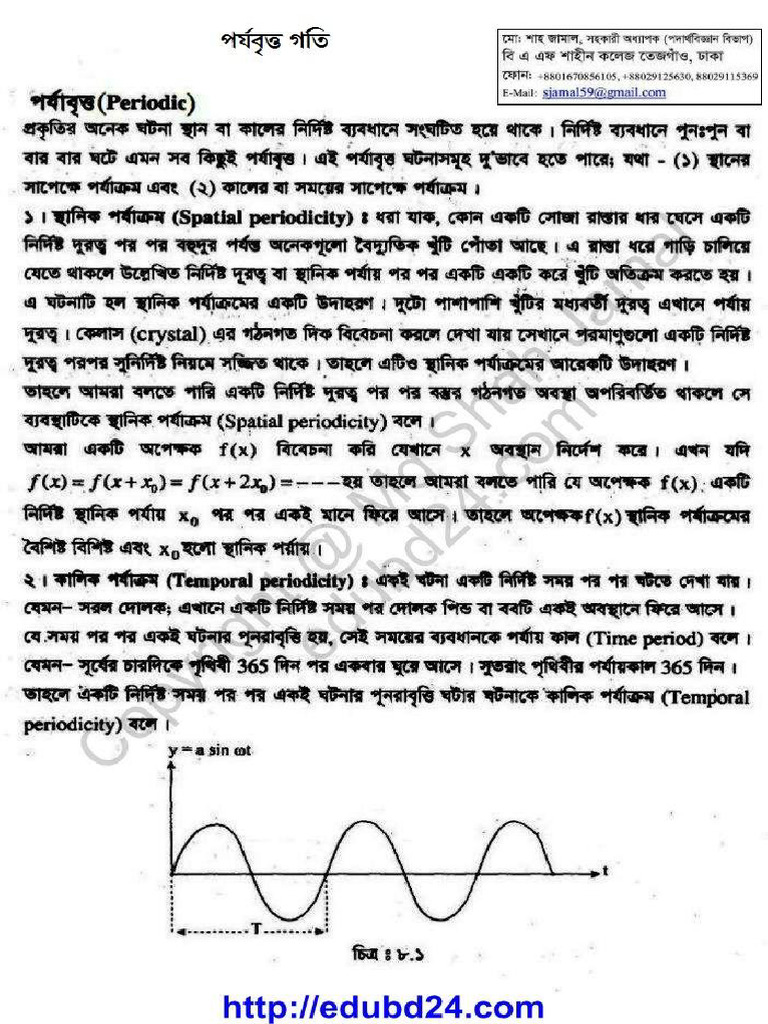 পর্যবৃত্ত গতি
মো: শাহ জামাল, সহকারী অধ্যাপক (পদার্থবিজ্ঞান বিভাগ)
বি এ এফ শাহীন কলেজ তেজগাঁও, ঢাকা
ফোন: +8801670856105, +88029125630, 88029115369
E-Mail: sjamal59@gmail.com
পর্যাবৃত্ত (Periodic)
প্রকৃতির অনেক ঘটনা স্থান বা কালের নির্দিষ্ট ব্যবধানে সংঘটিত হয়ে থাকে । নির্দিষ্ট ব্যবধানে পুনঃপুন বা
বার বার ঘটে এমন সব কিছুই পর্যাবৃত্ত । এই পর্যাবৃত্ত ঘটনাসমূহ দু'ভাবে হতে পারে; যথা - (১) স্থানের
সাপেক্ষে পর্যাক্রম এবং (২) কালের বা সময়ের সাপেক্ষে পর্যাক্রম ।
১ । স্থানিক পর্যাক্রম (Spatial periodicity) : ধরা যাক, কোন একটি সোজা রাস্তার ধার ঘেসে একটি
নির্দিষ্ট দূরত্ব পর পর বহুদূর পর্যন্ত অনেকগুলো বৈদ্যুতিক খুঁটি পোঁতা আছে । এ রাস্তা ধরে গাড়ি চালিয়ে
যেতে থাকলে উল্লেখিত নির্দিষ্ট দূরত্ব বা স্থানিক পর্যায় পর পর একটি একটি করে খুঁটি অতিক্রম করতে হয় ।
এ ঘটনাটি হল স্থানিক পর্যাক্রমের একটি উদাহরণ । দুটো পাশাপাশি খুঁটির মধ্যবর্তী দূরত্ব এখানে পর্যায়
দূরত্ব । কেলাস (crystal) এর গঠনগত দিক বিবেচনা করলে দেখা যায় সেখানে পরমাণুগুলো একটি নির্দিষ্ট
দূরত্ব পরপর সুনির্দিষ্ট নিয়মে সজ্জিত থাকে । তাহলে এটিও স্থানিক পর্যাক্রমের আরেকটি উদাহরণ ।
তাহলে আমরা বলতে পারি একটি নির্দিষ্ট দূরত্ব পর পর বস্তুর গঠনগত অবস্থা অপরিবর্তিত থাকলে সে
ব্যবস্থাটিকে স্থানিক পর্যাক্রম (Spatial periodicity) বলে ।
আমরা একটি অপেক্ষক f(x) বিবেচনা করি যেখানে x অবস্থান নির্দেশ করে । এখন যদি
f(x) = f(x + x₀) = f(x + 2x₀) = --- হয় তাহলে আমরা বলতে পারি যে অপেক্ষক f(x) একটি
নির্দিষ্ট স্থানিক পর্যায় x₀ পর পর একই মানে ফিরে আসে । তাহলে অপেক্ষক f(x) স্থানিক পর্যাক্রমের
বৈশিষ্ট বিশিষ্ট এবং x₀ হলো স্থানিক পর্যায় ।
২ । কালিক পর্যাক্রম (Temporal periodicity) : একই ঘটনা একটি নির্দিষ্ট সময় পর পর ঘটতে দেখা যায় ।
যেমন– সরল দোলক; এখানে একটি নির্দিষ্ট সময় পর দোলক পিন্ড বা ববটি একই অবস্থানে ফিরে আসে ।
যে সময় পর পর একই ঘটনার পূনরাবৃত্তি হয়, সেই সময়ের ব্যবধানকে পর্যায় কাল (Time period) বলে ।
যেমন– সূর্যের চারদিকে পৃথিবী 365 দিন পর একবার ঘুরে আসে । সুতরাং পৃথিবীর পর্যায়কাল 365 দিন ।
তাহলে একটি নির্দিষ্ট সময় পর পর একই ঘটনার পূনরাবৃত্তি ঘটার ঘটনাকে কালিক পর্যাক্রম (Temporal
periodicity) বলে ।
y = a sin ωt
t
T
চিত্র : ৮.১
Copyright @ Md Shah Jamal
edubd24.com
http://edubd24.com